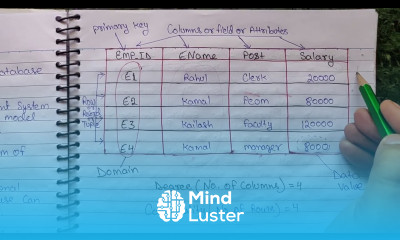 primary key
Columns or field or Attributes
Emp_ID EName Post Salary
E1 Rahul Clerk 20000
E2 Kamal Peom 80000
E3 Kailash Faculty 120000
E4 Kamal manager 8000
Domain
Data
Value
Degree (No. of Columns) = 4
of Rows) = 4
atabase
System
model
m of
Mind
Luster